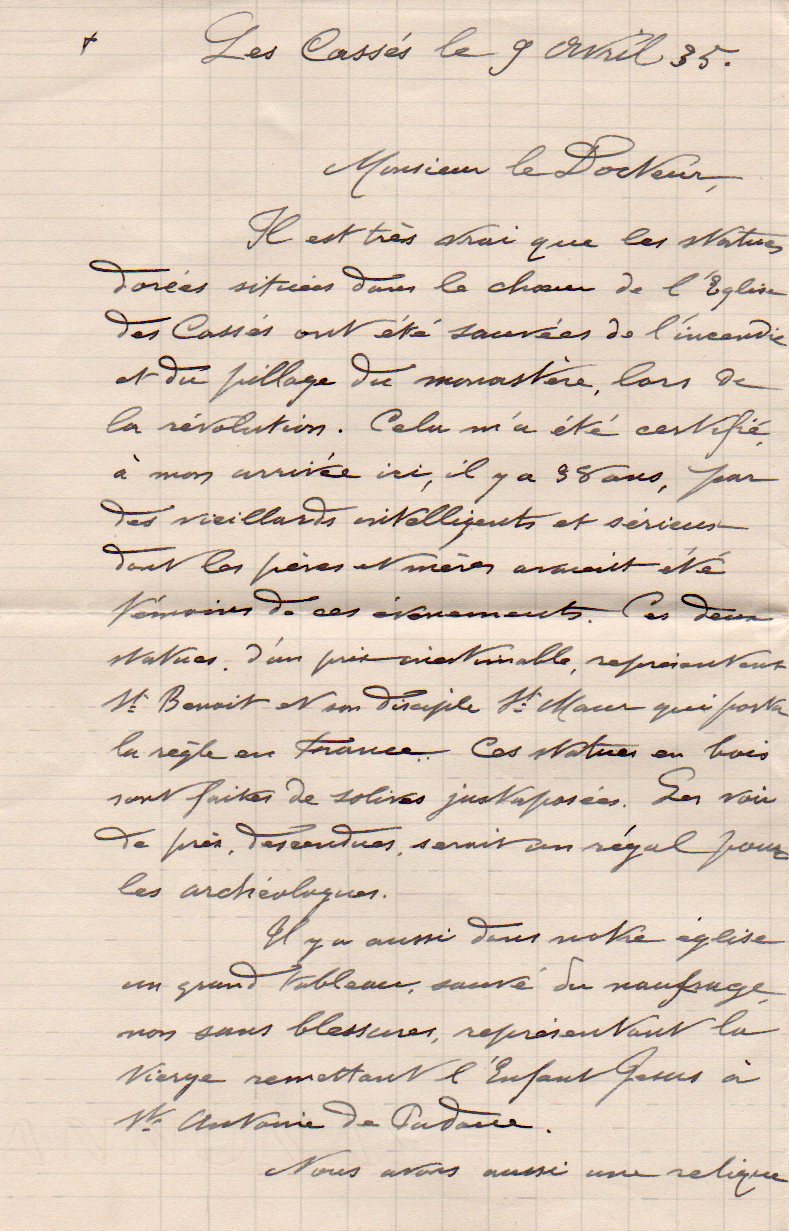 + Les Cassés le 9 Avril 35.
Monsieur le Docteur,
Il est très vrai que les statues
dorées situées dans le chœur de l'Eglise
des Cassés ont été sauvées de l'incendie
et du pillage du monastère, lors de
la révolution. Cela m'a été certifié,
à mon arrivée ici, il y a 38 ans, par
des vieillards intelligents et sérieux
dont les pères et mères avaient été
témoins de ces évènements. Ces deux
statues, d'un prix inestimable, représentent
St Benoit et son disciple St Maur qui porta
la règle en France. Ces statues en bois
sont faites de solives juxtaposées. Les voir
de près, descendues, serait un régal pour
les archéologues.
Il y a aussi dans notre église
un grand tableau, sauvé du naufrage,
non sans blessures, représentant la
Vierge remettant l'Enfant Jesus à
St Antoine de Padoue.
Nous avons aussi une relique